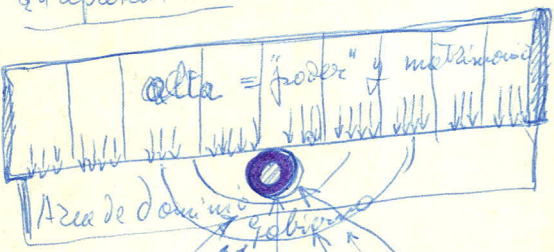 alta = "poder" y matrimonio
Area de dominio
gobierno